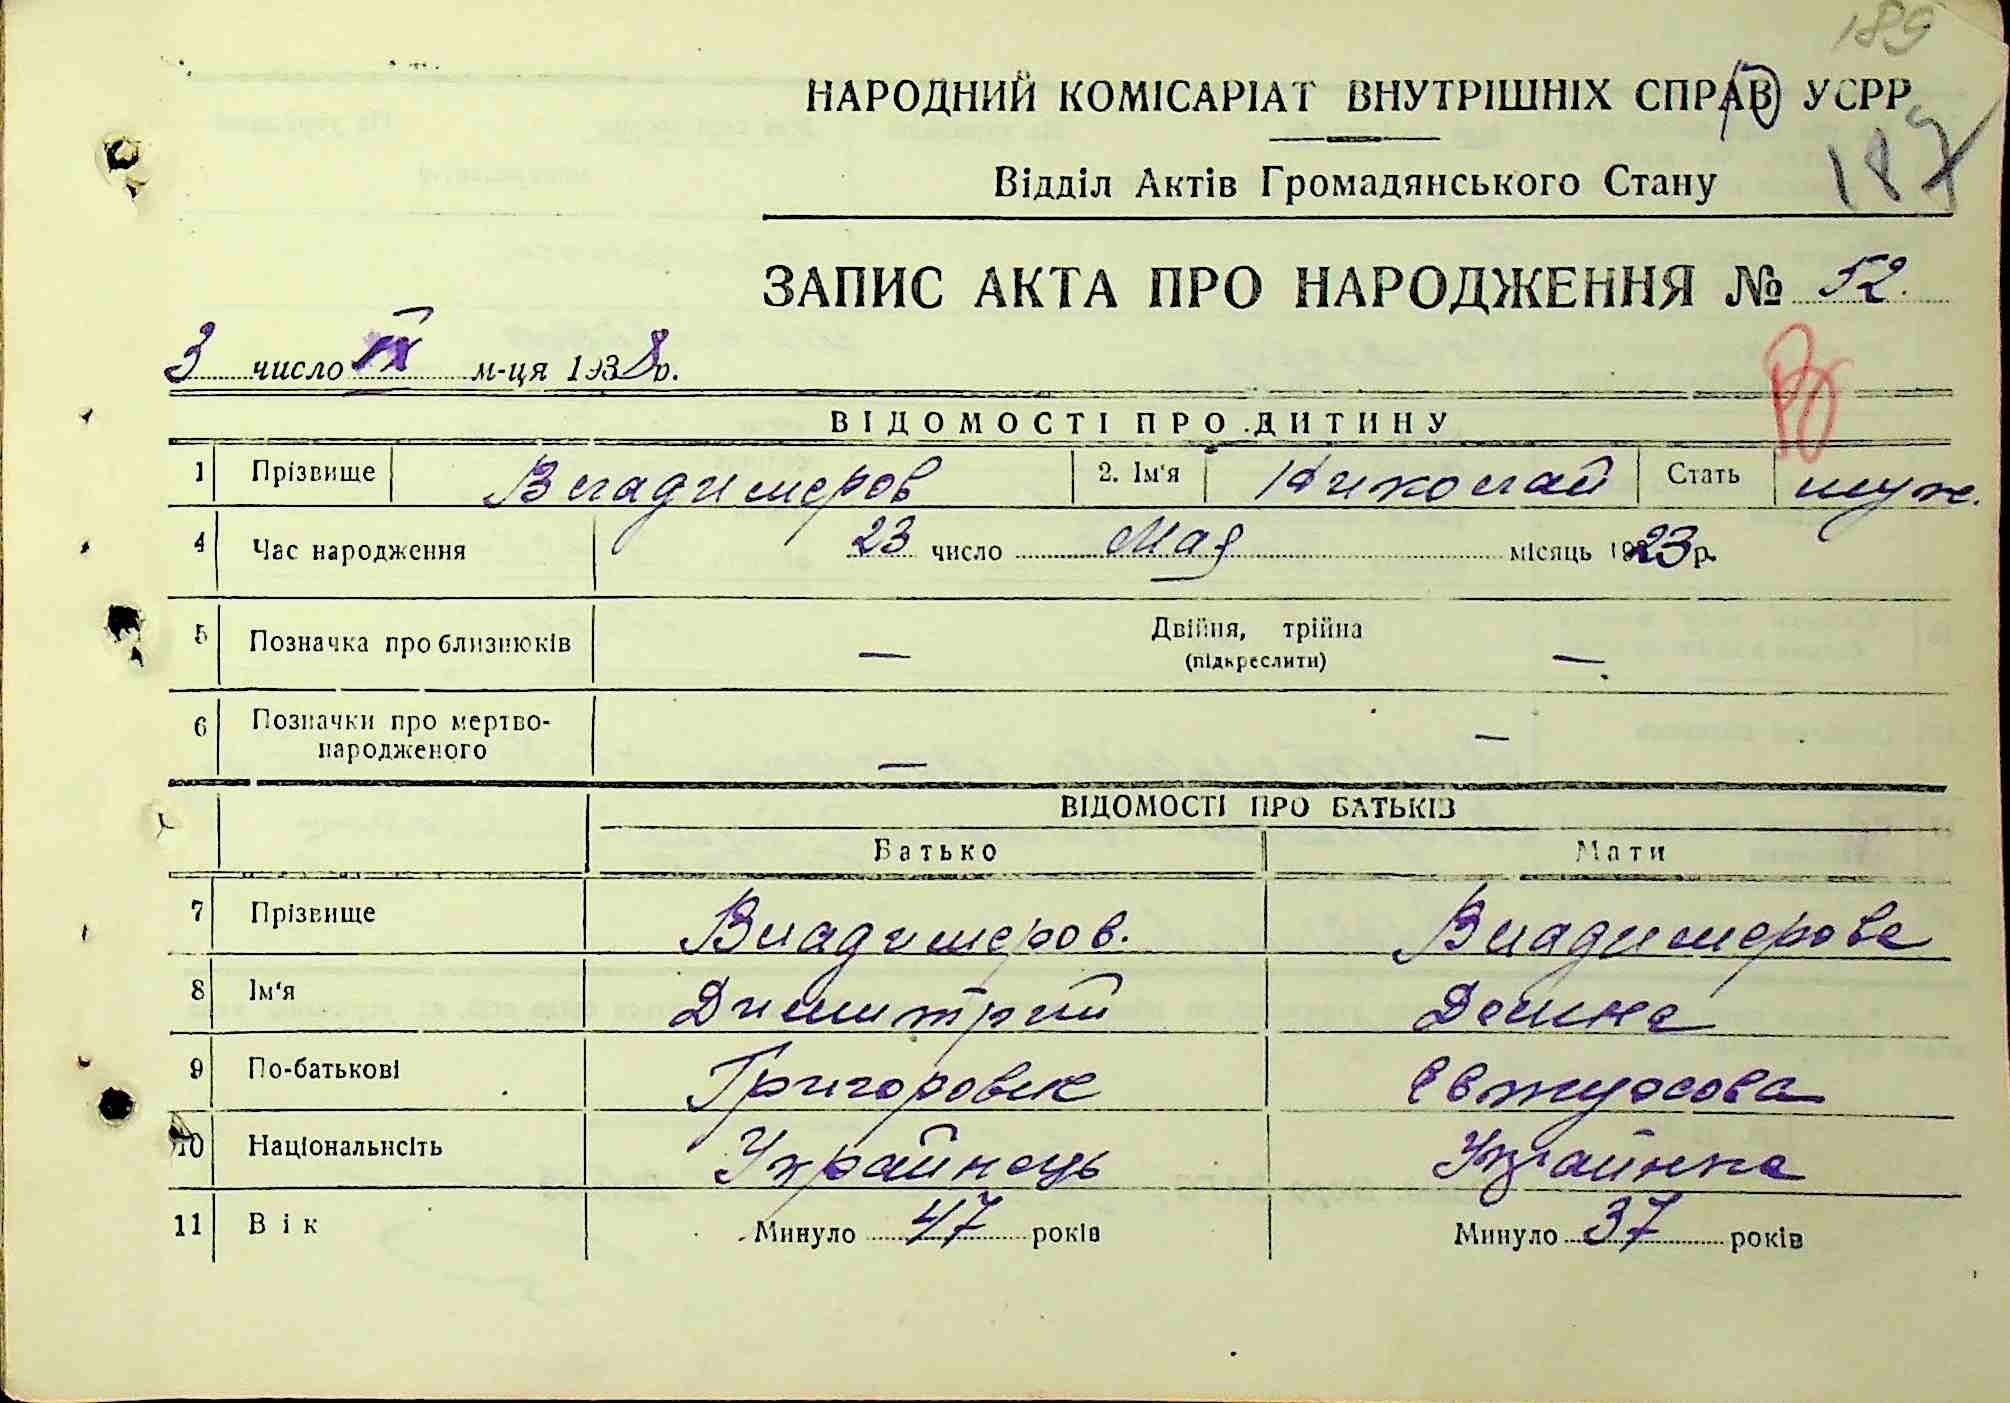 189
НАРОДНИЙ КОМІСАРІАТ ВНУТРІШНІХ СПРАВ УСРР
187
Відділ Актів Громадянського Стану
ЗАПИС АКТА ПРО НАРОДЖЕННЯ № 52.
3 число IX м-ця 1938 р.
ВІДОМОСТІ ПРО ДИТИНУ
1 Прізвище Владимеров 2. Ім'я Николай Стать муж.
4 Час народження 23 число Мая місяць 1923 р.
5 Позначка про близнюків — Двійня, трійна —
(підкреслити)
6 Позначки про мертво-
народженого — —
ВІДОМОСТІ ПРО БАТЬКІВ
Батько Мати
7 Прізвище Владимеров. Владимерова
8 Ім'я Димитрий Домна
9 По-батькові Григоровик
10 Національнсіть Украйнець Украйнка
11 Вік Минуло 47 років Минуло 37 років